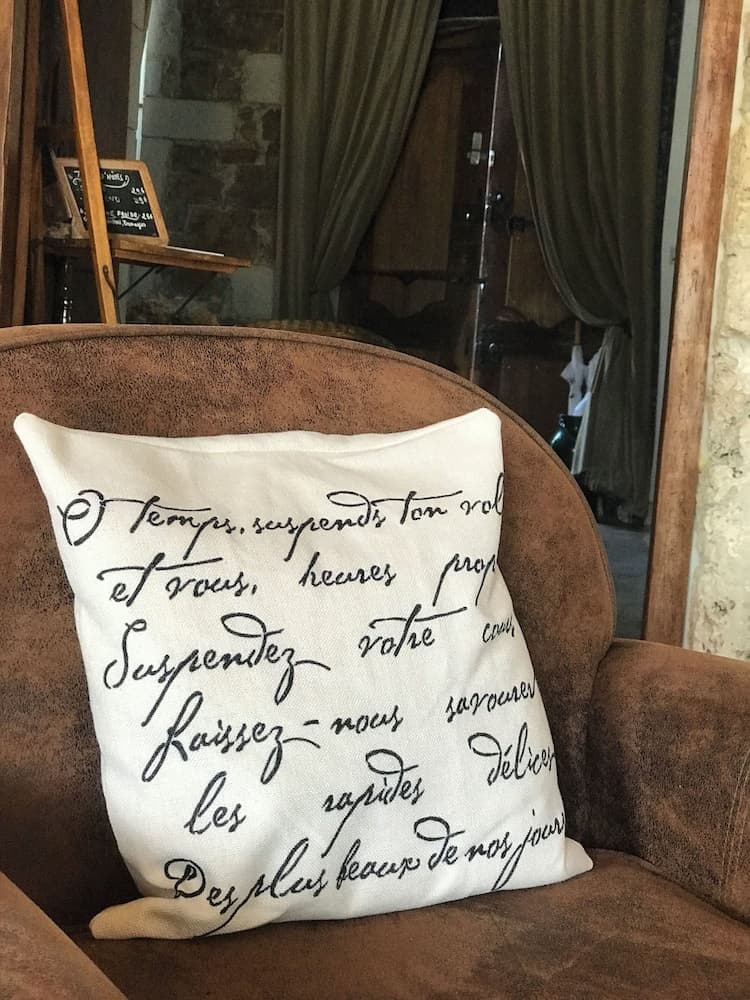 Ô temps, suspends ton vol
et vous, heures prop
Suspendez votre cour
Laissez-nous savourer
les rapides délices
Des plus beaux de nos jours